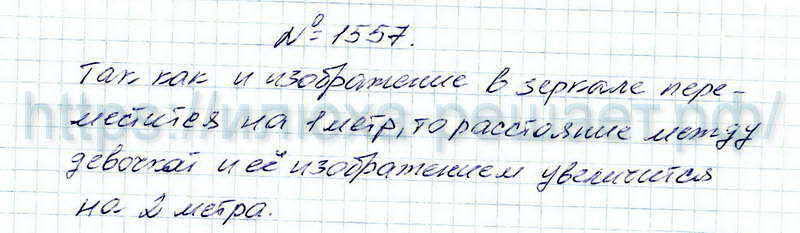 № 1557.
Так как и изображение в зеркале пере-
местится на 1 метр, то расстояние между
девочкой и её изображением увеличится
на 2 метра.